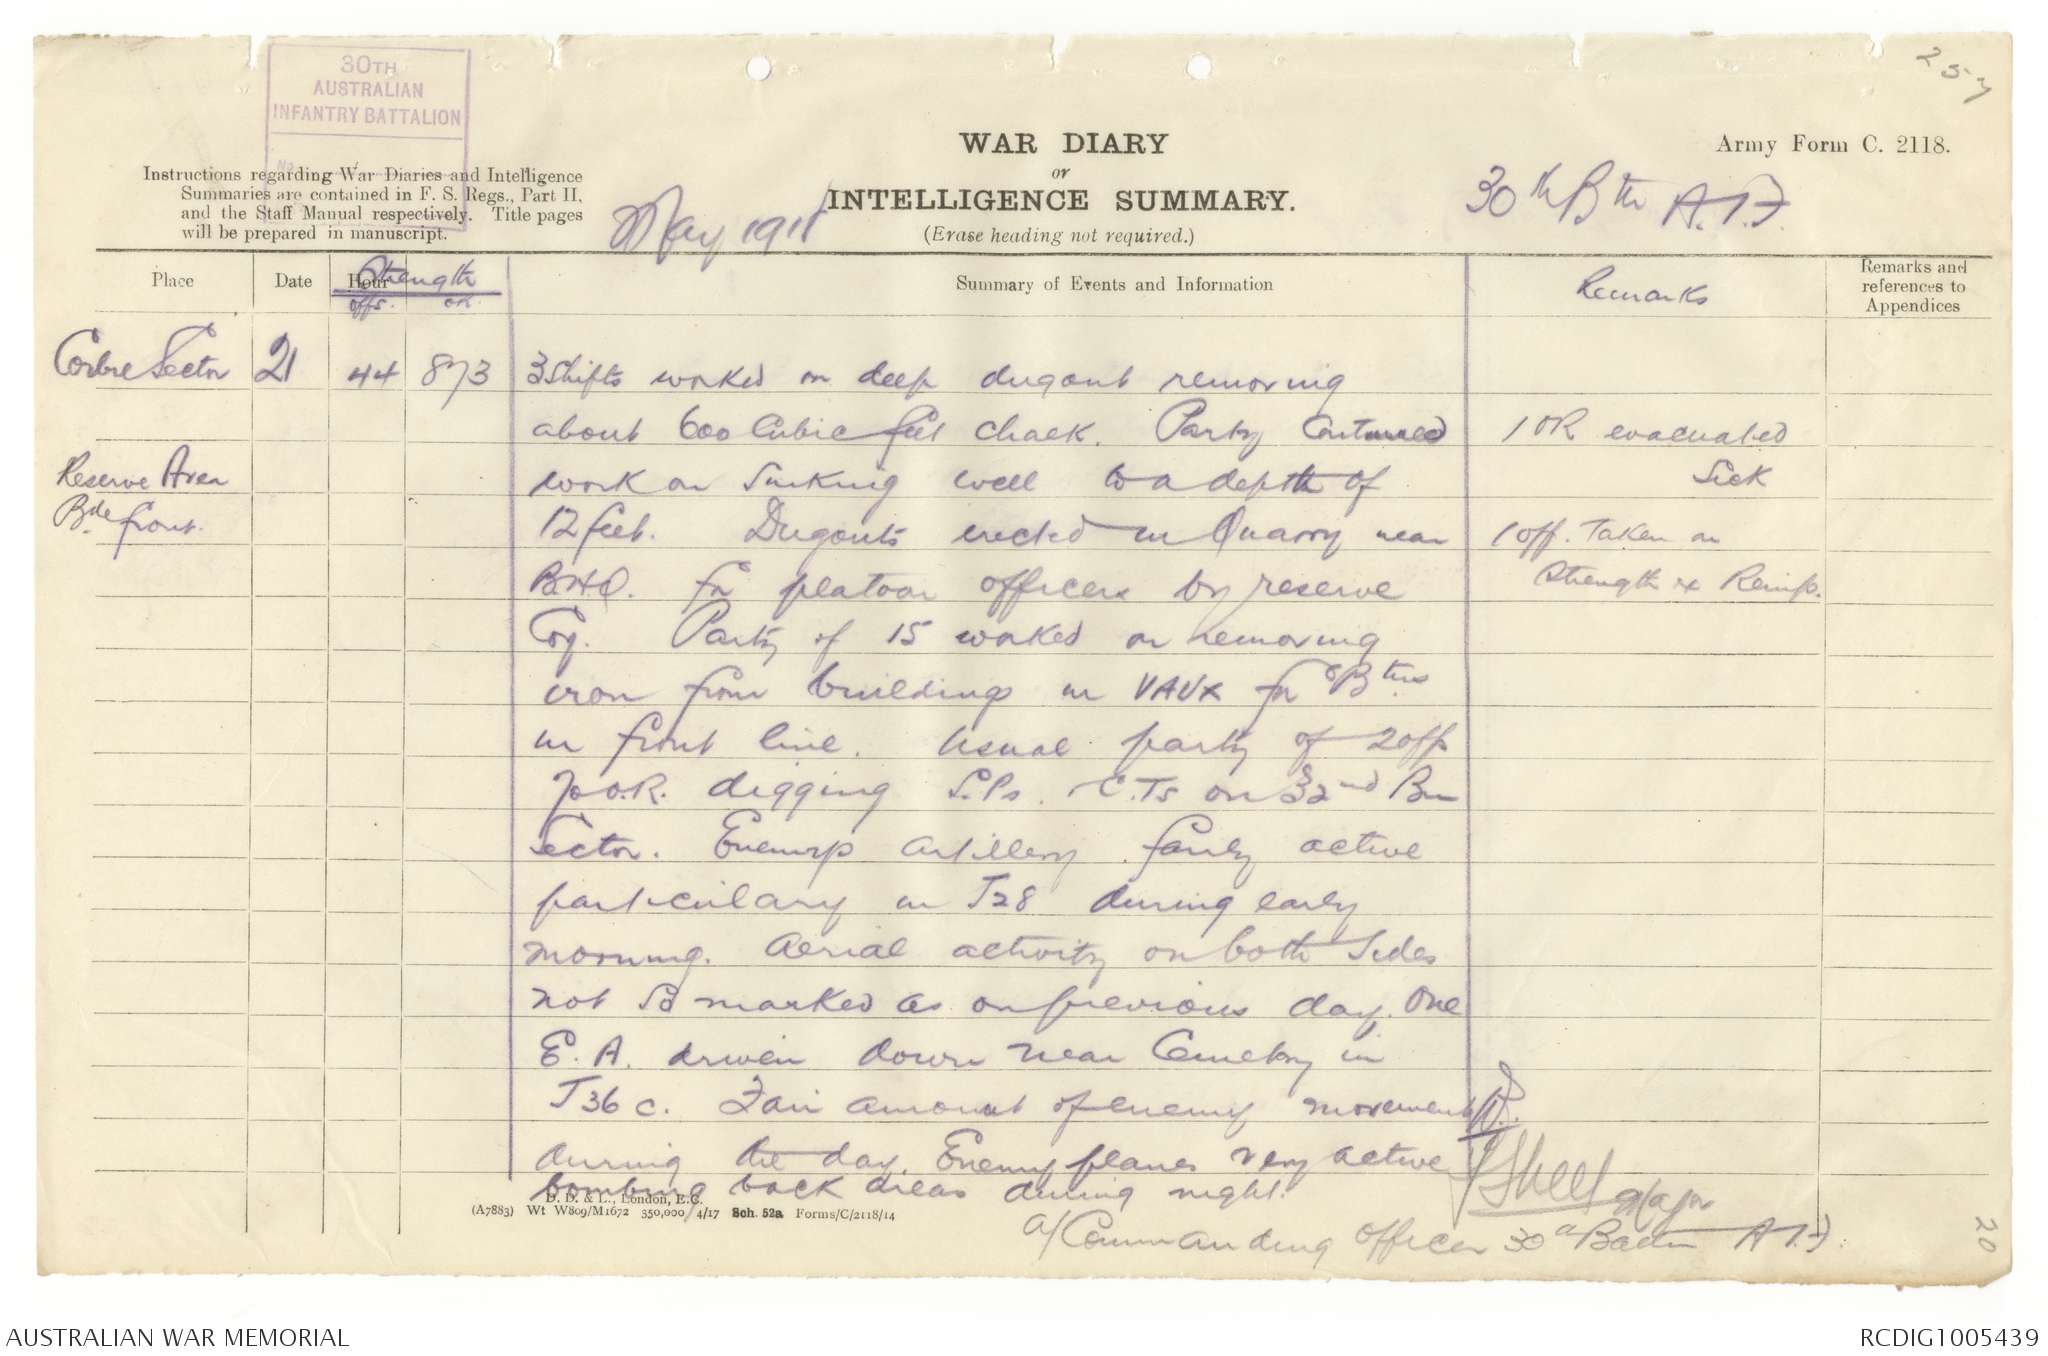 257
30TH
AUSTRALIAN
INFANTRY BATTALION
No.
WAR DIARY
or
INTELLIGENCE SUMMARY.
(Erase heading not required.)
Army Form C. 2118.
Instructions regarding War Diaries and Intelligence
Summaries are contained in F. S. Regs., Part II.
and the Staff Manual respectively. Title pages
will be prepared in manuscript.
May 1918
30th Btn A.I.F.
Place Date Hour Strength Summary of Events and Information Remarks Remarks and
references to
Appendices
offs. OR.
Corbie Sector 21 44 873 3 Shifts worked on deep dugout removing
about 600 Cubic feet chalk. Party Continued
1 OR evacuated
Reserve Area work on Sinking well to a depth of
Sick
Bde front. 12 feet. Dugouts erected in Quarry near
1 off. Taken on
B.H.Q. for platoon officers by reserve
Strength ex Reinfs.
Coy. Party of 15 worked on removing
iron from buildings in VAUX for Btns
in front line. Usual party of 2 offs
70 O.R. digging S.Ps. C.Ts on 32nd Bn
Sector. Enemys artillery fairly active
particulary in J28 during early
morning. Aerial activity on both Sides
not so marked as on previous day. One
E.A. driven down near Cemetry in
J36c. Fair amount of enemy movement
during the day. Enemy planes very active
bombing back areas during night.
D. D. & L., London, E.C.
(A7883) Wt W809/M1672 350,000 4/17 Sch. 52a Forms/C/2118/14
Major
a/Commanding Officer 30th Battn A.I.F.
20
AUSTRALIAN WAR MEMORIAL
RCDIG1005439